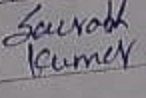 Sourabh
Kumar